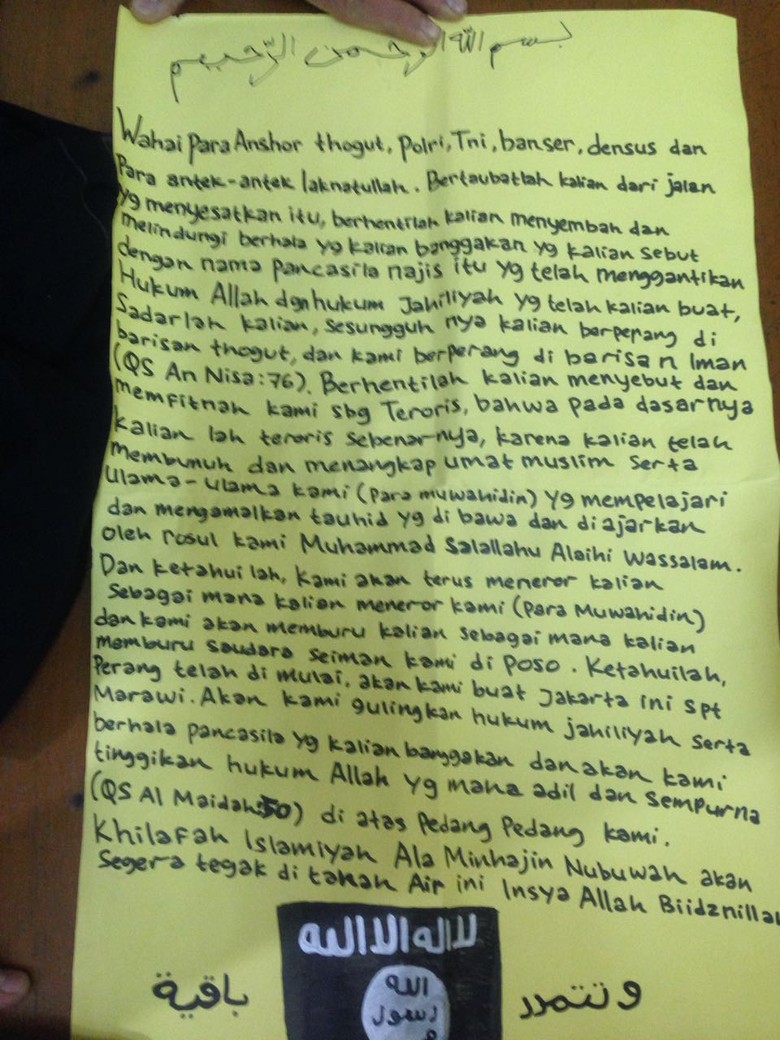 بسم الله الرحمن الرحيم
Wahai Para Anshor thogut, Polri, Tni, banser, densus dan
Para antek-antek laknatullah. Bertaubatlah kalian dari jalan
yg menyesatkan itu, berhentilah kalian menyembah dan
melindungi berhala yg kalian banggakan yg kalian sebut
dengan nama pancasila najis itu yg telah menggantikan
Hukum Allah dgn hukum Jahiliyah yg telah kalian buat,
Sadarlah kalian, sesungguh nya kalian berperang di
barisan thogut, dan kami berperang di barisan Iman
(QS An Nisa:76). Berhentilah kalian menyebut dan
memfitnah kami sbg Teroris, bahwa pada dasarnya
kalian lah teroris sebenarnya, karena kalian telah
membunuh dan menangkap umat muslim serta
ulama-ulama kami (para muwahidin) yg mempelajari
dan mengamalkan tauhid yg di bawa dan diajarkan
oleh rosul kami Muhammad Salallahu Alaihi Wassalam.
Dan ketahui lah, kami akan terus meneror kalian
Sebagai mana kalian meneror kami (para Muwahidin)
dan kami akan memburu kalian sebagai mana kalian
memburu saudara seiman kami di Poso. Ketahuilah,
Perang telah di mulai, akan kami buat Jakarta ini spt
Marawi. Akan kami gulingkan hukum jahiliyah serta
berhala pancasila yg kalian banggakan dan akan kami
tinggikan hukum Allah yg mana adil dan sempurna
(QS Al Maidah:50) di atas Pedang Pedang kami.
Khilafah Islamiyah Ala Minhajin Nubuwah akan
Segera tegak di tanah Air ini Insya Allah Biidznillah
لا اله الا الله
الله
رسول
باقية
و تتمدد